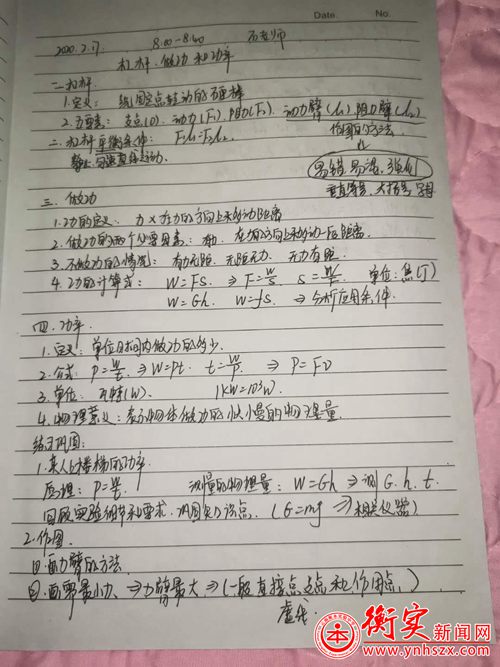 Date.        No.
2020.2.17    8:00-8:40    石老师
杠杆、做功和功率
一.杠杆
1.定义: 绕固定点转动的硬棒
2.五要素: 支点(O) 动力(F₁) 阻力(F₂) 动力臂(l₁) 阻力臂(l₂)
作图的方法
二.杠杆平衡条件: F₁l₁=F₂l₂
静止 匀速直线运动
易错.易混.强化
垂直符号、大括号、字母
三. 做功
1.功的定义: 力×力的方向上移动距离
2.做功的两个必要因素: 有力 在力的方向上移动一段距离
3.不做功的情况: 有力无距 无距无力 无力有距
4.功的计算式: W=Fs ⇒ F=W/s s=W/F 单位:焦(J)
W=Gh W=fs ⇒ 分析应用条件
四.功率
1.定义:单位时间内做功的多少.
2.公式: P=W/t ⇒ W=Pt. t=W/P ⇒ P=Fv
3.单位: 瓦特(W). 1KW=10³W)
4.物理意义:表示物体做功的快慢的物理量.
练习巩固:
1.某人上楼梯的功率
原理: P=W/t 测量的物理量: W=Gh ⇒ 测G.h.t.
回顾实验细节和要求.巩固知识点. (G=mg ⇒ 相关仪器)
2.作图
(1)画力臂的方法.
(2)画最小力 ⇒ 力臂最大 ⇒ (一般直接连支点和作用点.)
虚线.
衡实新闻网
www.ynhszx.com